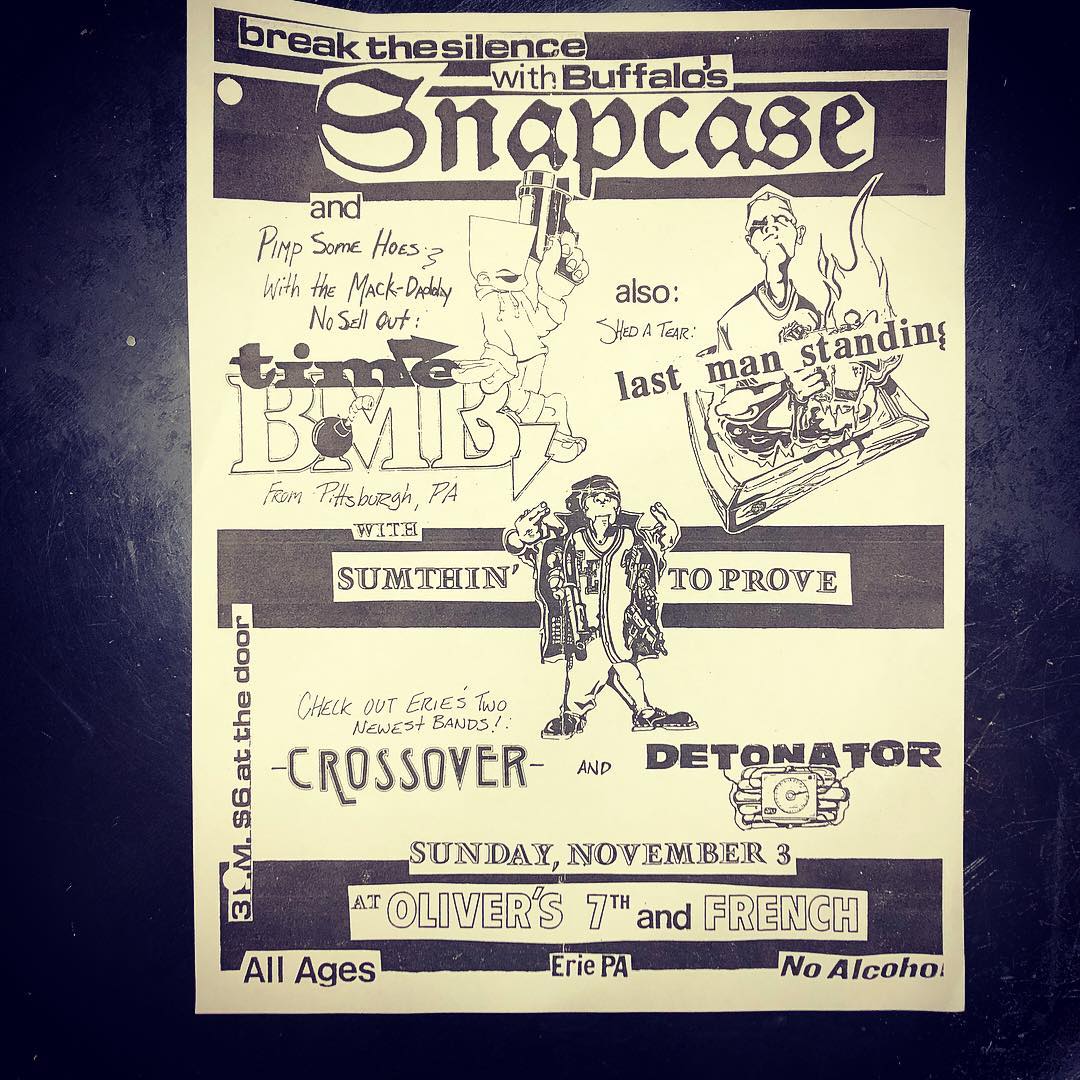 break the silence
with Buffalo's
Snapcase
and
Pimp Some Hoes
With the Mack-Daddy
No Sell Out:
time
BMB
From Pittsburgh, PA
also:
Shed a Tear:
last man standing
WITH
SUMTHIN' TO PROVE
Check out Erie's Two
Newest Bands!:
-CROSSOVER-
AND
DETONATOR
3P.M. $6 at the door
SUNDAY, NOVEMBER 3
AT OLIVER'S 7TH and FRENCH
All Ages
Erie PA
No Alcohol